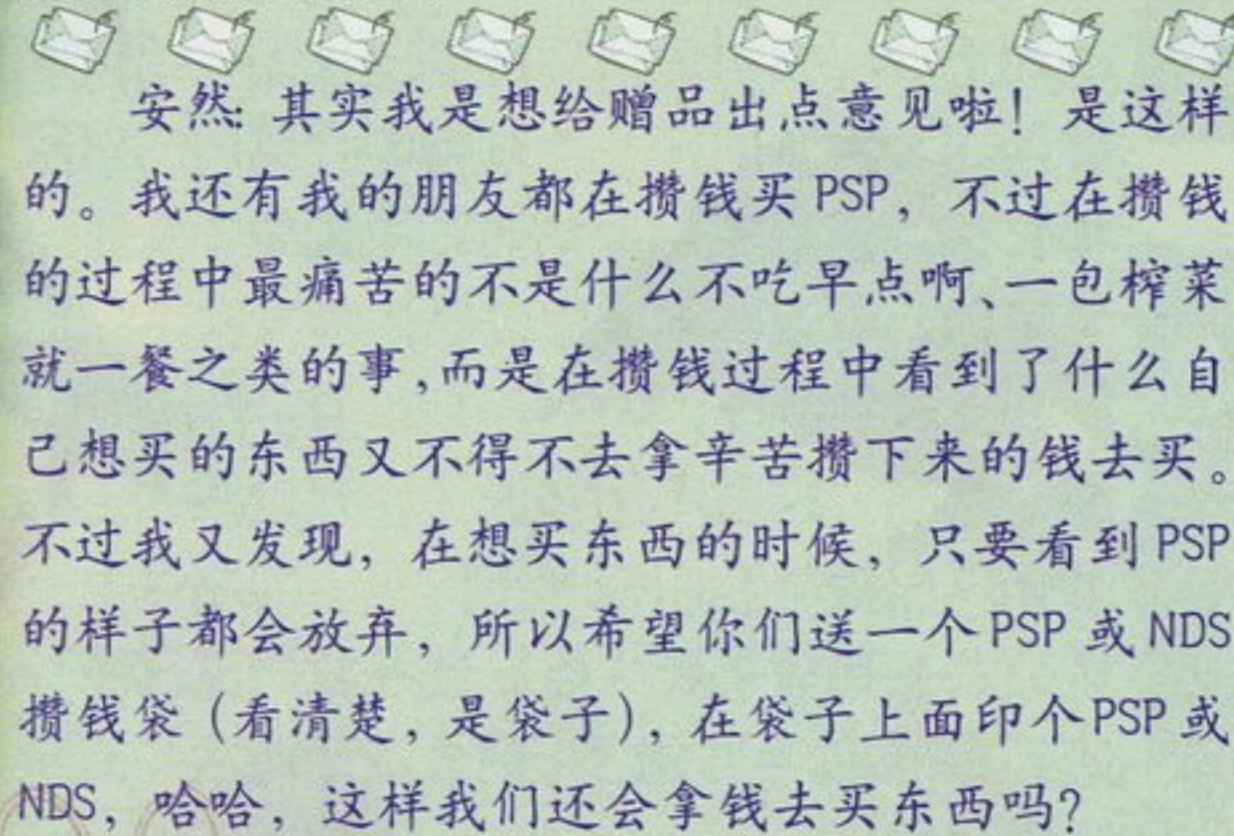 安然: 其实我是想给赠品出点意见啦！是这样
的。我还有我的朋友都在攒钱买 PSP，不过在攒钱
的过程中最痛苦的不是什么不吃早点啊、一包榨菜
就一餐之类的事,而是在攒钱过程中看到了什么自
己想买的东西又不得不去拿辛苦攒下来的钱去买。
不过我又发现，在想买东西的时候，只要看到 PSP
的样子都会放弃，所以希望你们送一个 PSP 或 NDS
攒钱袋（看清楚，是袋子），在袋子上面印个PSP 或
NDS，哈哈，这样我们还会拿钱去买东西吗？